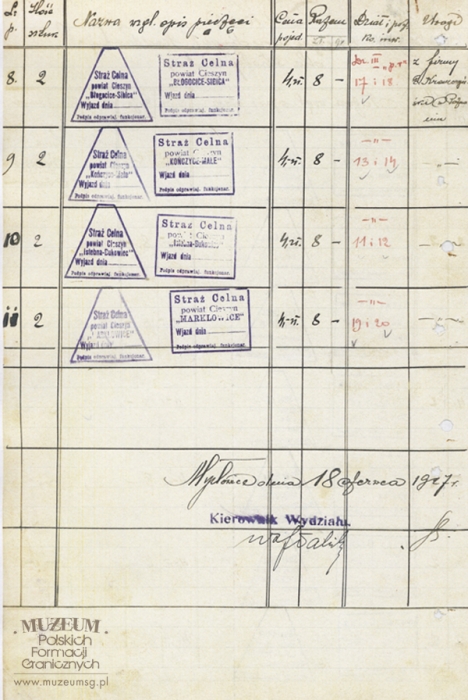 L. p.
Ilość sztuk
Nazwa wzgl. opis pieczęci
Cena pojed.
Razem
zł. gr.
Dział i poz.
Uwagi
8. 2
Straż Celna
powiat Cieszyn
„Błogocice-Sibica”
Wyjazd dnia
Podpis odprawiaj. funkcjonar.
Straż Celna
powiat Cieszyn
„BŁOGOCICE-SIBICA”
Wjazd dnia
Podpis odprawiaj. funkcjonar.
4,– 8 –
Dz. III
17 i 18
z firmy
9 2
Straż Celna
powiat Cieszyn
„Kończyce-Małe”
Wyjazd dnia
Podpis odprawiaj. funkcjonar.
Straż Celna
powiat Cieszyn
„KOŃCZYCE-MAŁE”
Wjazd dnia
Podpis odprawiaj. funkcjonar.
4,– 8 –
–„–
13 i 14
–„–
10 2
Straż Celna
powiat Cieszyn
Wyjazd dnia
Podpis odprawiaj. funkcjonar.
Straż Celna
powiat Cieszyn
Wjazd dnia
Podpis odprawiaj. funkcjonar.
4,– 8 –
–„–
11 i 12
–„–
11 2
Straż Celna
powiat Cieszyn
„MARKLOWICE”
Wyjazd dnia
Podpis odprawiaj. funkcjonar.
Straż Celna
powiat Cieszyn
„MARKLOWICE”
Wjazd dnia
Podpis odprawiaj. funkcjonar.
4,– 8 –
–„–
19 i 20
–„–
dnia 18 czerwca 1927 r.
Kierownik Wydziału.
MUZEUM
Polskich
Formacji
Granicznych
www.muzeumsg.pl